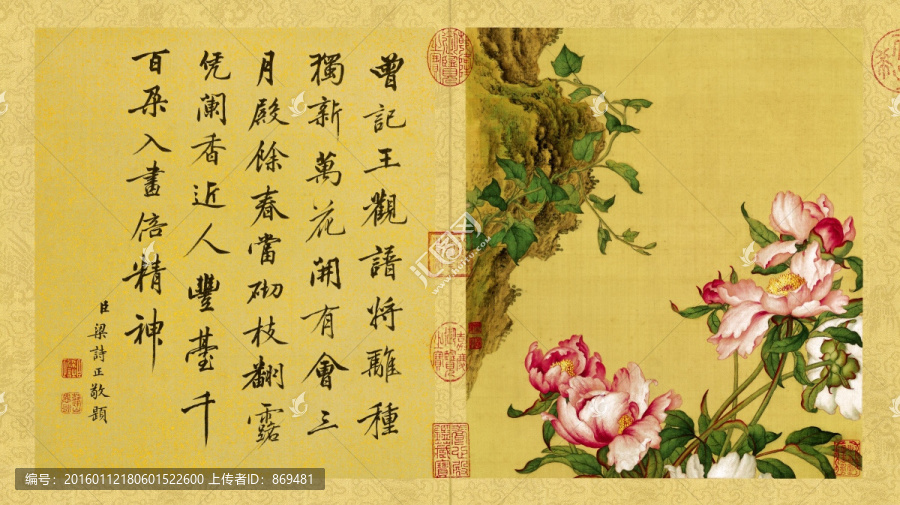 曾記王觀譜將離種
獨新萬花開有會三
月殿餘春當砌枝翻露
凭闌香近人豐臺千
百朶入畫倍精神
臣梁詩正敬題
编号:20160112180601522600 上传者ID:869481